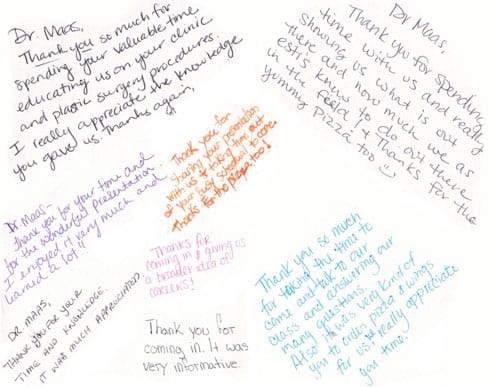 Dr. Maas,
Thank you so much for
spending your valuable time
educating us on your clinic
and plastic surgery procedures.
I really appreciate the knowledge
you gave us. Thanks again,
Dr Maas,
Thank you for spending
time with us and really
showing us what is out
there and how much we as
esti's know to do out there
in the feild! & Thanks for the
yummy Pizza too
Thank you for
sharing your presentation
with us & taking time out
of your busy schedual to come.
Thanks for the pizza too!
Dr. Maas-
Thank you for your time and
for the wonderful presentation.
I enjoyed it very much and
learned a lot!!
Thanks for
coming in & giving us
a broader idea of
careers!
DR. MAAS,
THANK YOU FOR YOUR
TIME AND KNOWLEDGE.
IT WAS MUCH APPRECIATED.
Thank you for
coming in. It was
very informative.
Thank you so much
for taking the time to
come and talk to our
class and answering our
many questions.
Also it was very kind of
you to order pizza & wings
for us. We really appreciate
you time.